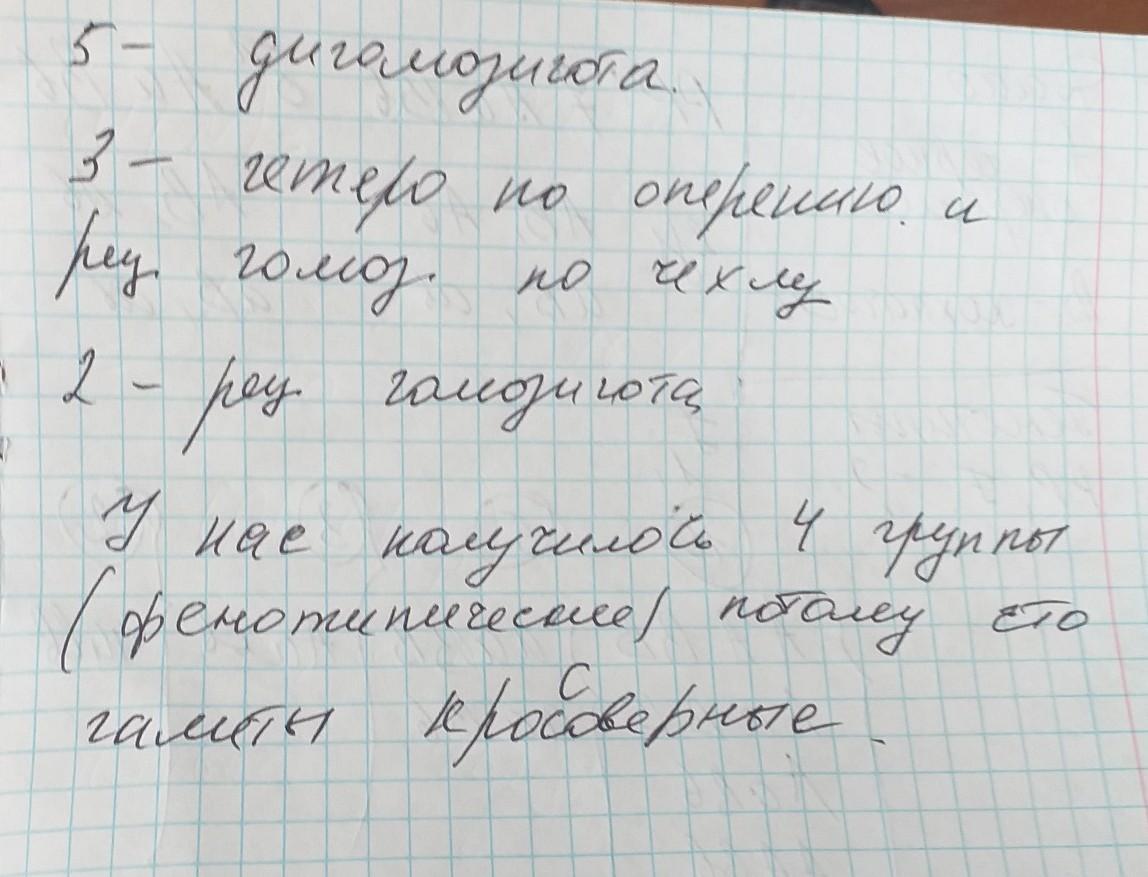 5 - дигомозигота.
3 - гетеро по оперению и
рец. гомоз. по чехлу
2 - рец. гомозигота
У нас получилось 4 группы
(фенотипические) потому что
гаметы кроссоверные.